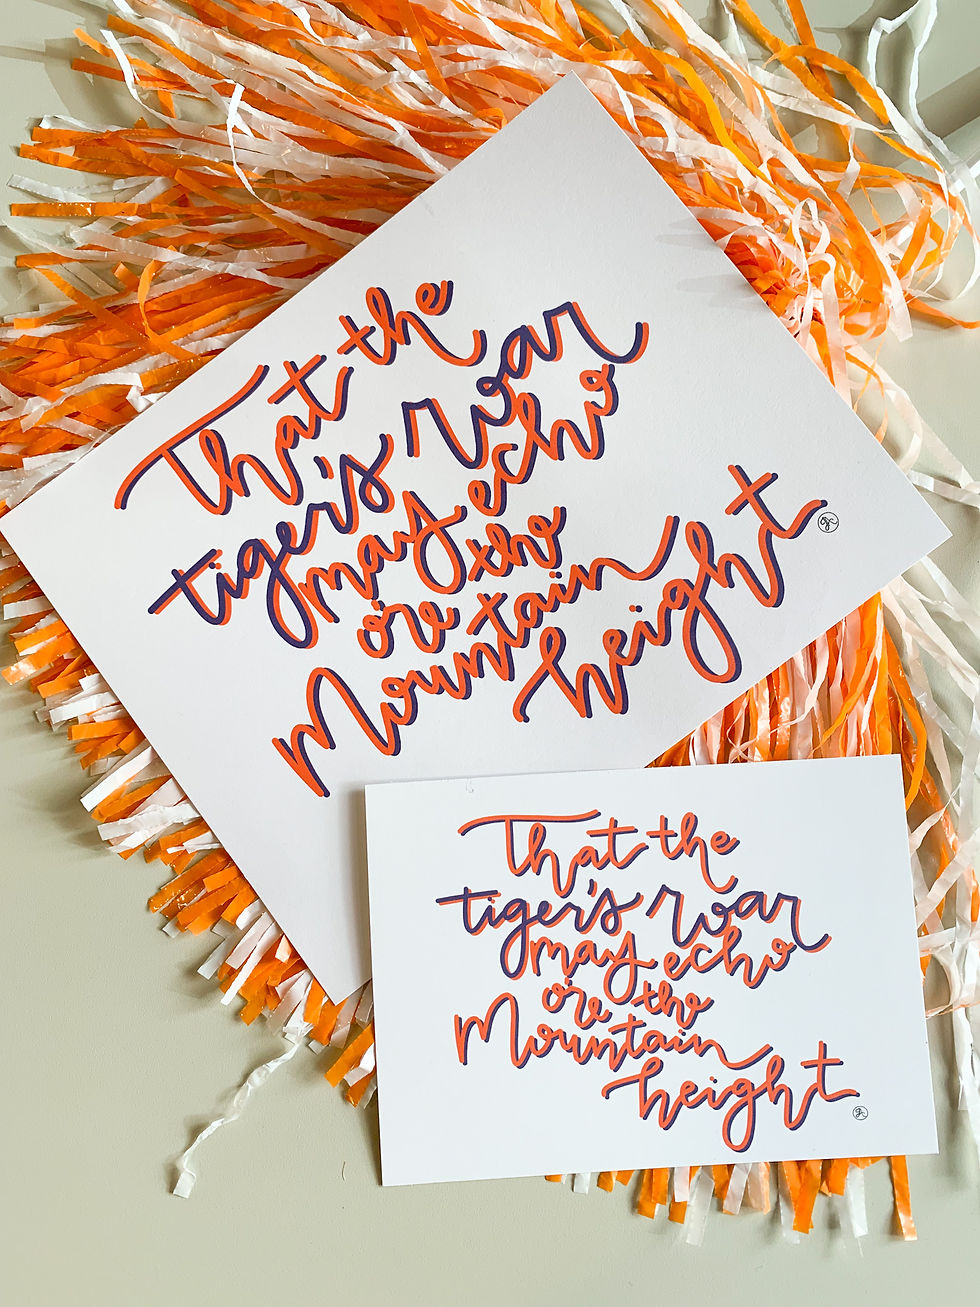 That the
tiger's roar
may echo
o're the
Mountain
height
That the
tiger's roar
may echo
o're the
Mountain
height